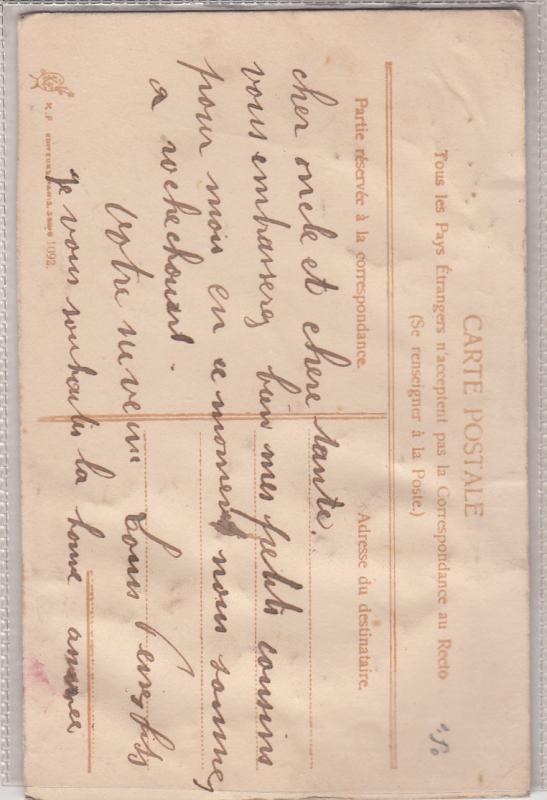 CARTE POSTALE
Tous les Pays Étrangers n'acceptent pas la Correspondance au Recto
(Se renseigner à la Poste.)
Partie réservée à la correspondance.
Adresse du destinataire.
cher oncle et chere tante.
vous embrasserez bien mes petits cousins
pour mois en ce moment nous sommes
a rochechouart.
votre neveu Louis
Je vous souhaites la bonne année
K.F. EDITEURS, PARIS, SERIE 1092